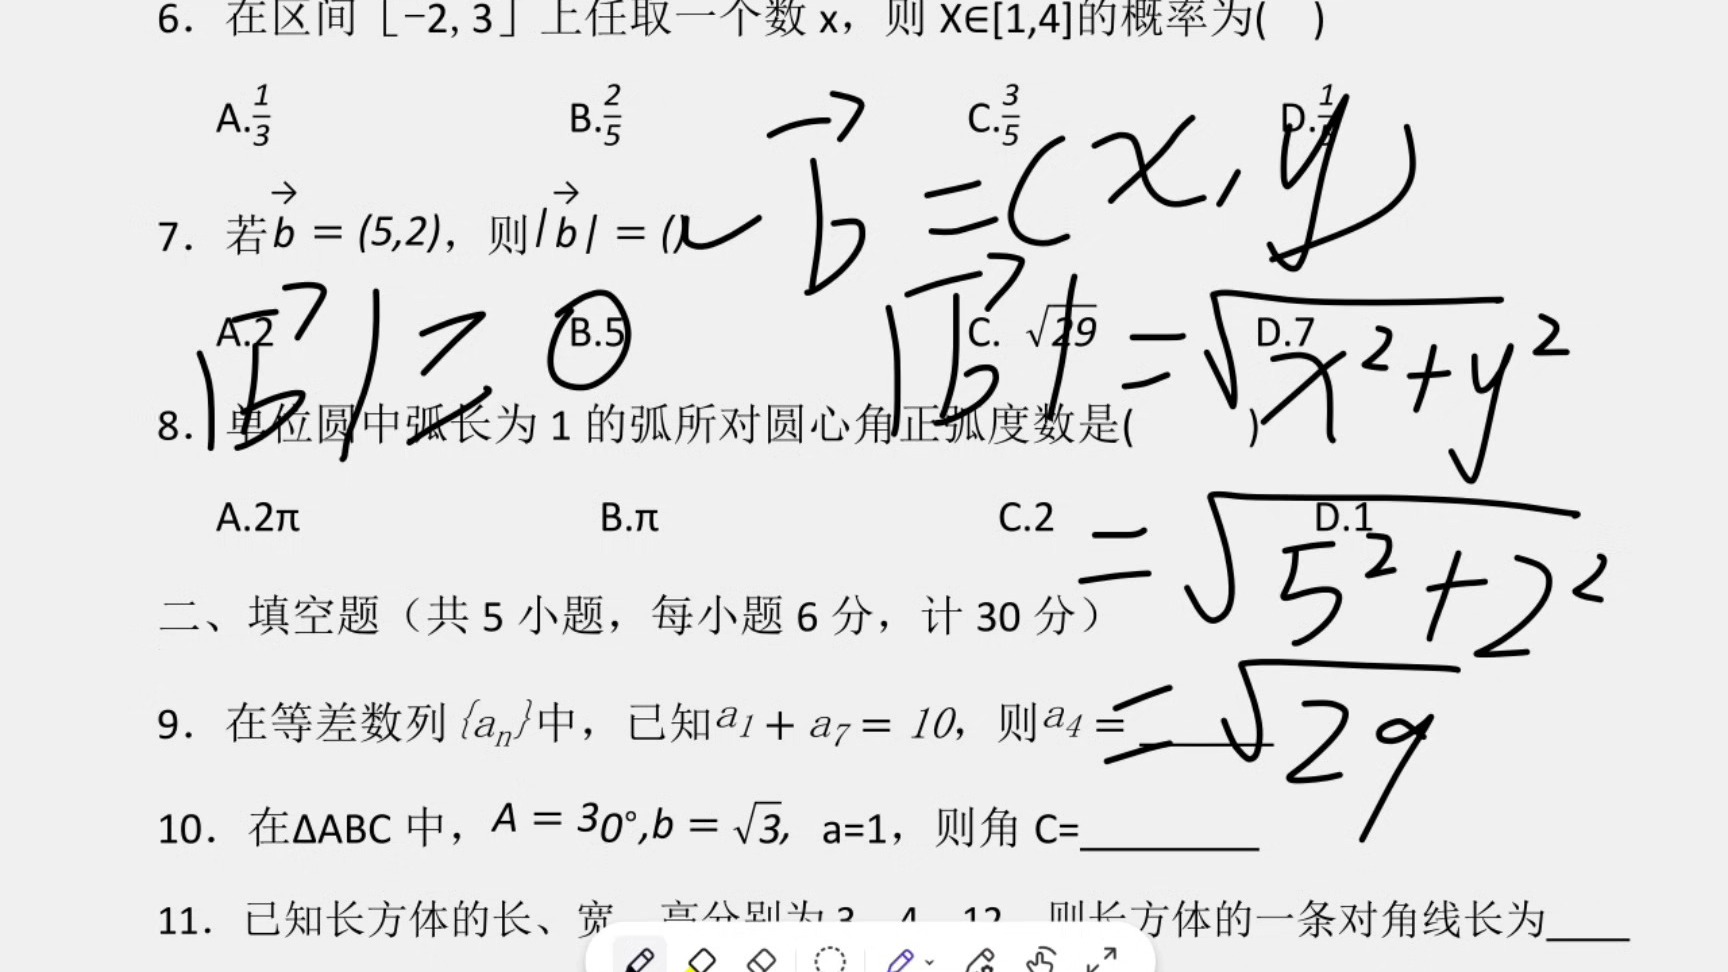 6. 在区间［-2, 3］上任取一个数 x，则 X∈[1,4]的概率为(  )
A.1/3  B.2/5  C.3/5  D.1/5
b→ = (x, y)
7. 若b→ = (5,2)，则|b→| = ()
A.2  B.5  C. √29  D.7
|b→| ≥ 0  |b→| = √x²+y²
8. 单位圆中弧长为 1 的弧所对圆心角正弧度数是(  )
A.2π  B.π  C.2  D.1
= √5²+2²
二、填空题（共 5 小题，每小题 6 分，计 30 分）
= √29
9. 在等差数列{aₙ}中，已知a₁ + a₇ = 10，则a₄ = ______
10. 在ΔABC 中，A = 30°,b = √3, a=1，则角 C=________
11. 已知长方体的长、宽、高分别为 3、4、12，则长方体的一条对角线长为____